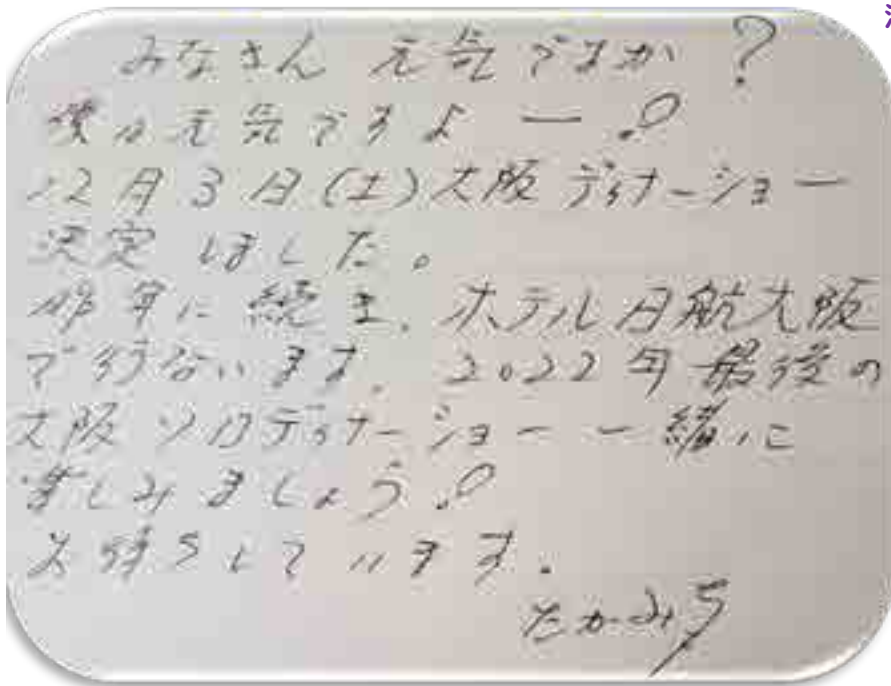 みなさん 元気ですか？
僕は元気ですよー！
12月3日(土)大阪ディナーショー
決定しました。
昨年に続き、ホテル日航大阪
で行ないます。2022年最後の
大阪ソロディナーショー一緒に
楽しみましょう！
お待ちしています。
たかみち